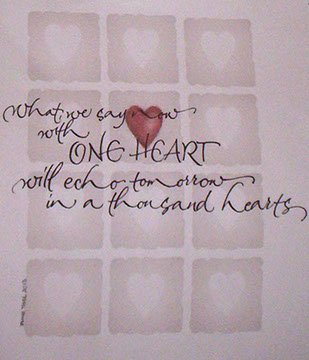 What we say now
with
ONE HEART
will echo tomorrow
in a thousand hearts